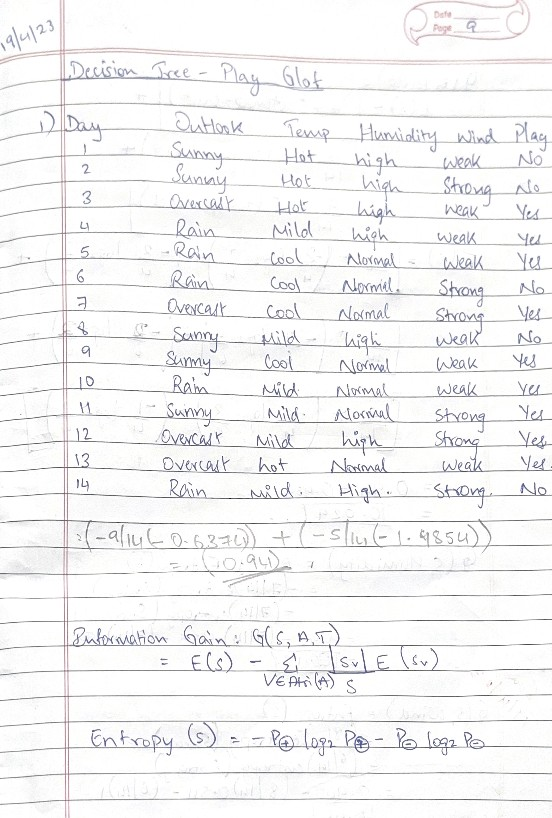 19/4/23
Date
Page 9
Decision Tree - Play Glof
1) Day Outlook Temp Humidity Wind Play
1 Sunny Hot high weak No
2 Sunny Hot high Strong No
3 Overcast Hot high weak Yes
4 Rain Mild high weak Yes
5 Rain Cool Normal weak Yes
6 Rain Cool Normal. Strong No
7 Overcast Cool Normal Strong Yes
8 Sunny Mild high Weak No
9 Sunny Cool Normal Weak Yes
10 Rain Mild Normal weak Yes
11 Sunny Mild. Normal Strong Yes
12 Overcast Mild high Strong Yes
13 Overcast hot Normal weak Yes.
14 Rain Mild. High. Strong. No
=(-9/14(-0.6374)) + (-5/14(-1.4854))
= (0.94)
Information Gain: G(S, A, T)
= E(S) - Σ |Sv| E (Sv)
V∈Attri(A) S
Entropy (S) = -P⊕ log2 P⊕ - P⊖ log2 P⊖